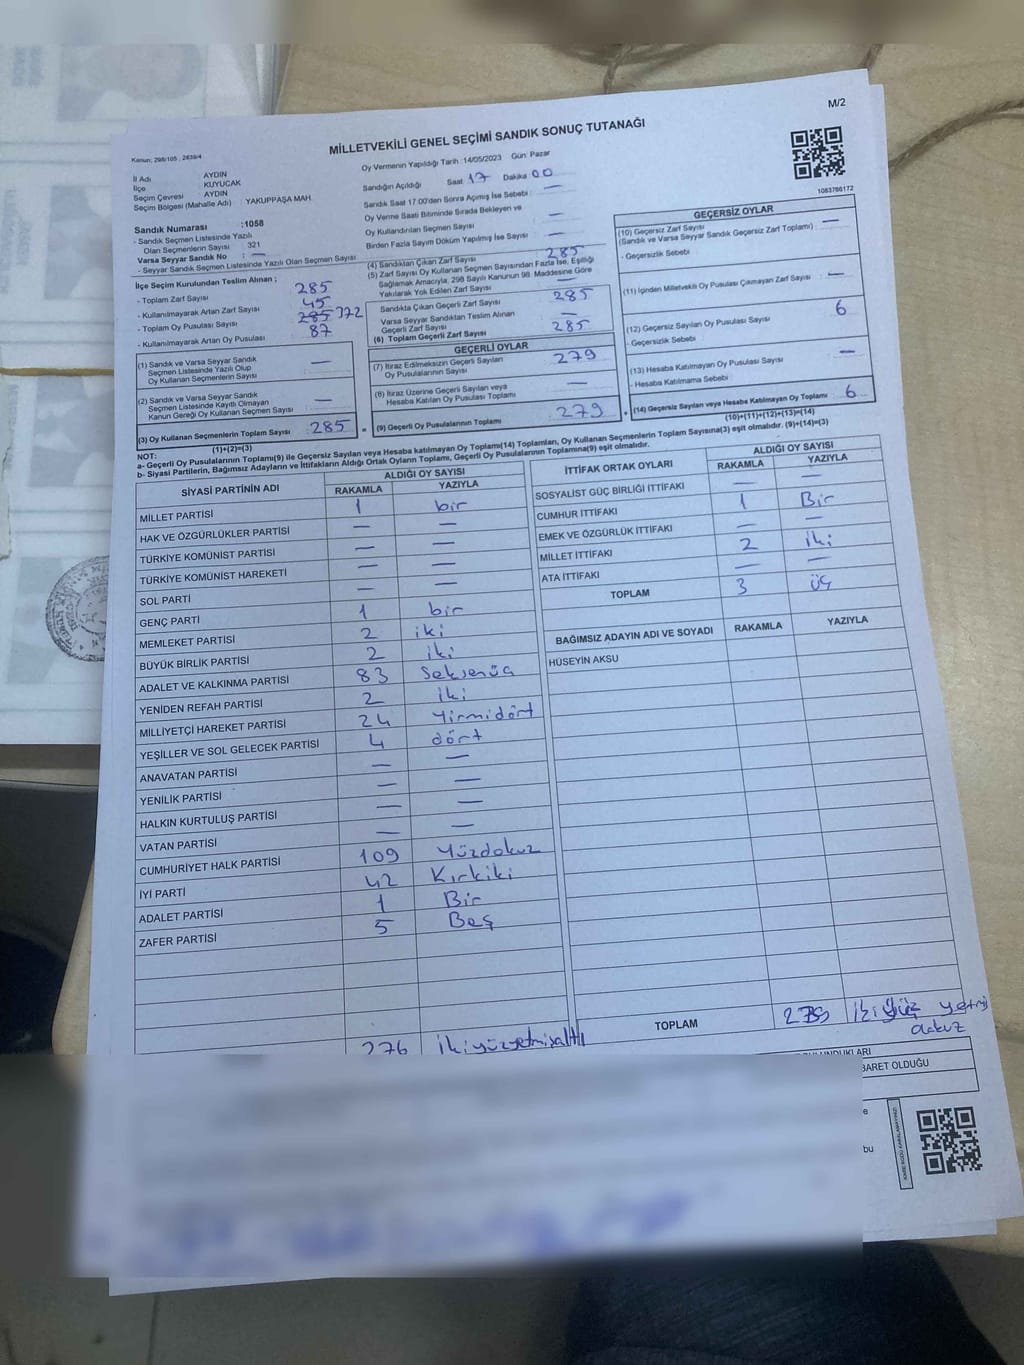 M/2
MİLLETVEKİLİ GENEL SEÇİMİ SANDIK SONUÇ TUTANAĞI
Kanun; 298/105 , 2839/4
Oy Vermenin Yapıldığı Tarih :14/05/2023 Gün: Pazar
İl Adı AYDIN
İlçe KUYUCAK
Seçim Çevresi AYDIN
Seçim Bölgesi (Mahalle Adı) : YAKUPPAŞA MAH
Sandık Numarası :1058
- Sandık Seçmen Listesinde Yazılı
Olan Seçmenlerin Sayısı : 321
Varsa Seyyar Sandık No : —
- Seyyar Sandık Seçmen Listesinde Yazılı Olan Seçmen Sayısı
Sandığın Açıldığı Saat 17 Dakika 00
Sandık Saat 17.00'den Sonra Açımış İse Sebebi : —
Oy Verme Saati Bitiminde Sırada Bekleyen ve
Oy Kullandırılan Seçmen Sayısı —
Birden Fazla Sayım Döküm Yapılmış İse Sayısı —
1083786172
İlçe Seçim Kurulundan Teslim Alınan ;
- Toplam Zarf Sayısı 285
- Kullanılmayarak Artan Zarf Sayısı 45
- Toplam Oy Pusulası Sayısı 285 372
- Kullanılmayarak Artan Oy Pusulası 87
(1) Sandık ve Varsa Seyyar Sandık
Seçmen Listesinde Yazılı Olup
Oy Kullanan Seçmenlerin Sayısı —
(2) Sandık ve Varsa Seyyar Sandık
Seçmen Listesinde Kayıtlı Olmayan
Kanun Gereği Oy Kullanan Seçmen Sayısı —
(3) Oy Kullanan Seçmenlerin Toplam Sayısı 285
(1)+(2)=(3)
(4) Sandıktan Çıkan Zarf Sayısı 285
(5) Zarf Sayısı Oy Kullanan Seçmen Sayısından Fazla İse, Eşitliği
Sağlamak Amacıyla, 298 Sayılı Kanunun 98. Maddesine Göre
Yakılarak Yok Edilen Zarf Sayısı —
Sandıkta Çıkan Geçerli Zarf Sayısı 285
Varsa Seyyar Sandıktan Teslim Alınan
Geçerli Zarf Sayısı —
(6) Toplam Geçerli Zarf Sayısı 285
GEÇERLİ OYLAR
(7) İtiraz Edilmeksizin Geçerli Sayılan
Oy Pusulalarının Sayısı 279
(8) İtiraz Üzerine Geçerli Sayılan veya
Hesaba Katılan Oy Pusulası Toplamı —
(9) Geçerli Oy Pusulalarının Toplamı 279
GEÇERSİZ OYLAR
(10) Geçersiz Zarf Sayısı —
(Sandık ve Varsa Seyyar Sandık Geçersiz Zarf Toplamı)
- Geçersizlik Sebebi
(11) İçinden Milletvekili Oy Pusulası Çıkmayan Zarf Sayısı —
(12) Geçersiz Sayılan Oy Pusulası Sayısı 6
- Geçersizlik Sebebi
(13) Hesaba Katılmayan Oy Pusulası Sayısı —
- Hesaba Katılmama Sebebi
(14) Geçersiz Sayılan veya Hesaba Katılmayan Oy Toplamı 6
(10)+(11)+(12)+(13)=(14)
NOT:
a- Geçerli Oy Pusulalarının Toplamı(9) ile Geçersiz Sayılan veya Hesaba katılmayan Oy Toplamı(14) Toplamları, Oy Kullanan Seçmenlerin Toplam Sayısına(3) eşit olmalıdır. (9)+(14)=(3)
b- Siyasi Partilerin, Bağımsız Adayların ve İttifakların Aldığı Ortak Oyların Toplamı, Geçerli Oy Pusulalarının Toplamına(9) eşit olmalıdır.
SİYASİ PARTİNİN ADI ALDIĞI OY SAYISI
RAKAMLA YAZIYLA
MİLLET PARTİSİ 1 bir
HAK VE ÖZGÜRLÜKLER PARTİSİ — —
TÜRKİYE KOMÜNİST PARTİSİ — —
TÜRKİYE KOMÜNİST HAREKETİ — —
SOL PARTİ — —
GENÇ PARTİ 1 bir
MEMLEKET PARTİSİ 2 iki
BÜYÜK BİRLİK PARTİSİ 2 iki
ADALET VE KALKINMA PARTİSİ 83 Seksenüç
YENİDEN REFAH PARTİSİ 2 İki
MİLLİYETÇİ HAREKET PARTİSİ 24 Yirmidört
YEŞİLLER VE SOL GELECEK PARTİSİ 4 dört
ANAVATAN PARTİSİ — —
YENİLİK PARTİSİ — —
HALKIN KURTULUŞ PARTİSİ — —
VATAN PARTİSİ — —
CUMHURİYET HALK PARTİSİ 109 Yüzdokuz
İYİ PARTİ 42 Kırkiki
ADALET PARTİSİ 1 Bir
ZAFER PARTİSİ 5 Beş
276 ikiyüzyetmişaltı
İTTİFAK ORTAK OYLARI ALDIĞI OY SAYISI
RAKAMLA YAZIYLA
SOSYALİST GÜÇ BİRLİĞİ İTTİFAKI — —
CUMHUR İTTİFAKI 1 Bir
EMEK VE ÖZGÜRLÜK İTTİFAKI — —
MİLLET İTTİFAKI 2 iki
ATA İTTİFAKI — —
TOPLAM 3 üç
BAĞIMSIZ ADAYIN ADI VE SOYADI RAKAMLA YAZIYLA
HÜSEYİN AKSU
TOPLAM 279 iki yüz yetmiş
dokuz
BARET OLDUĞU
bu